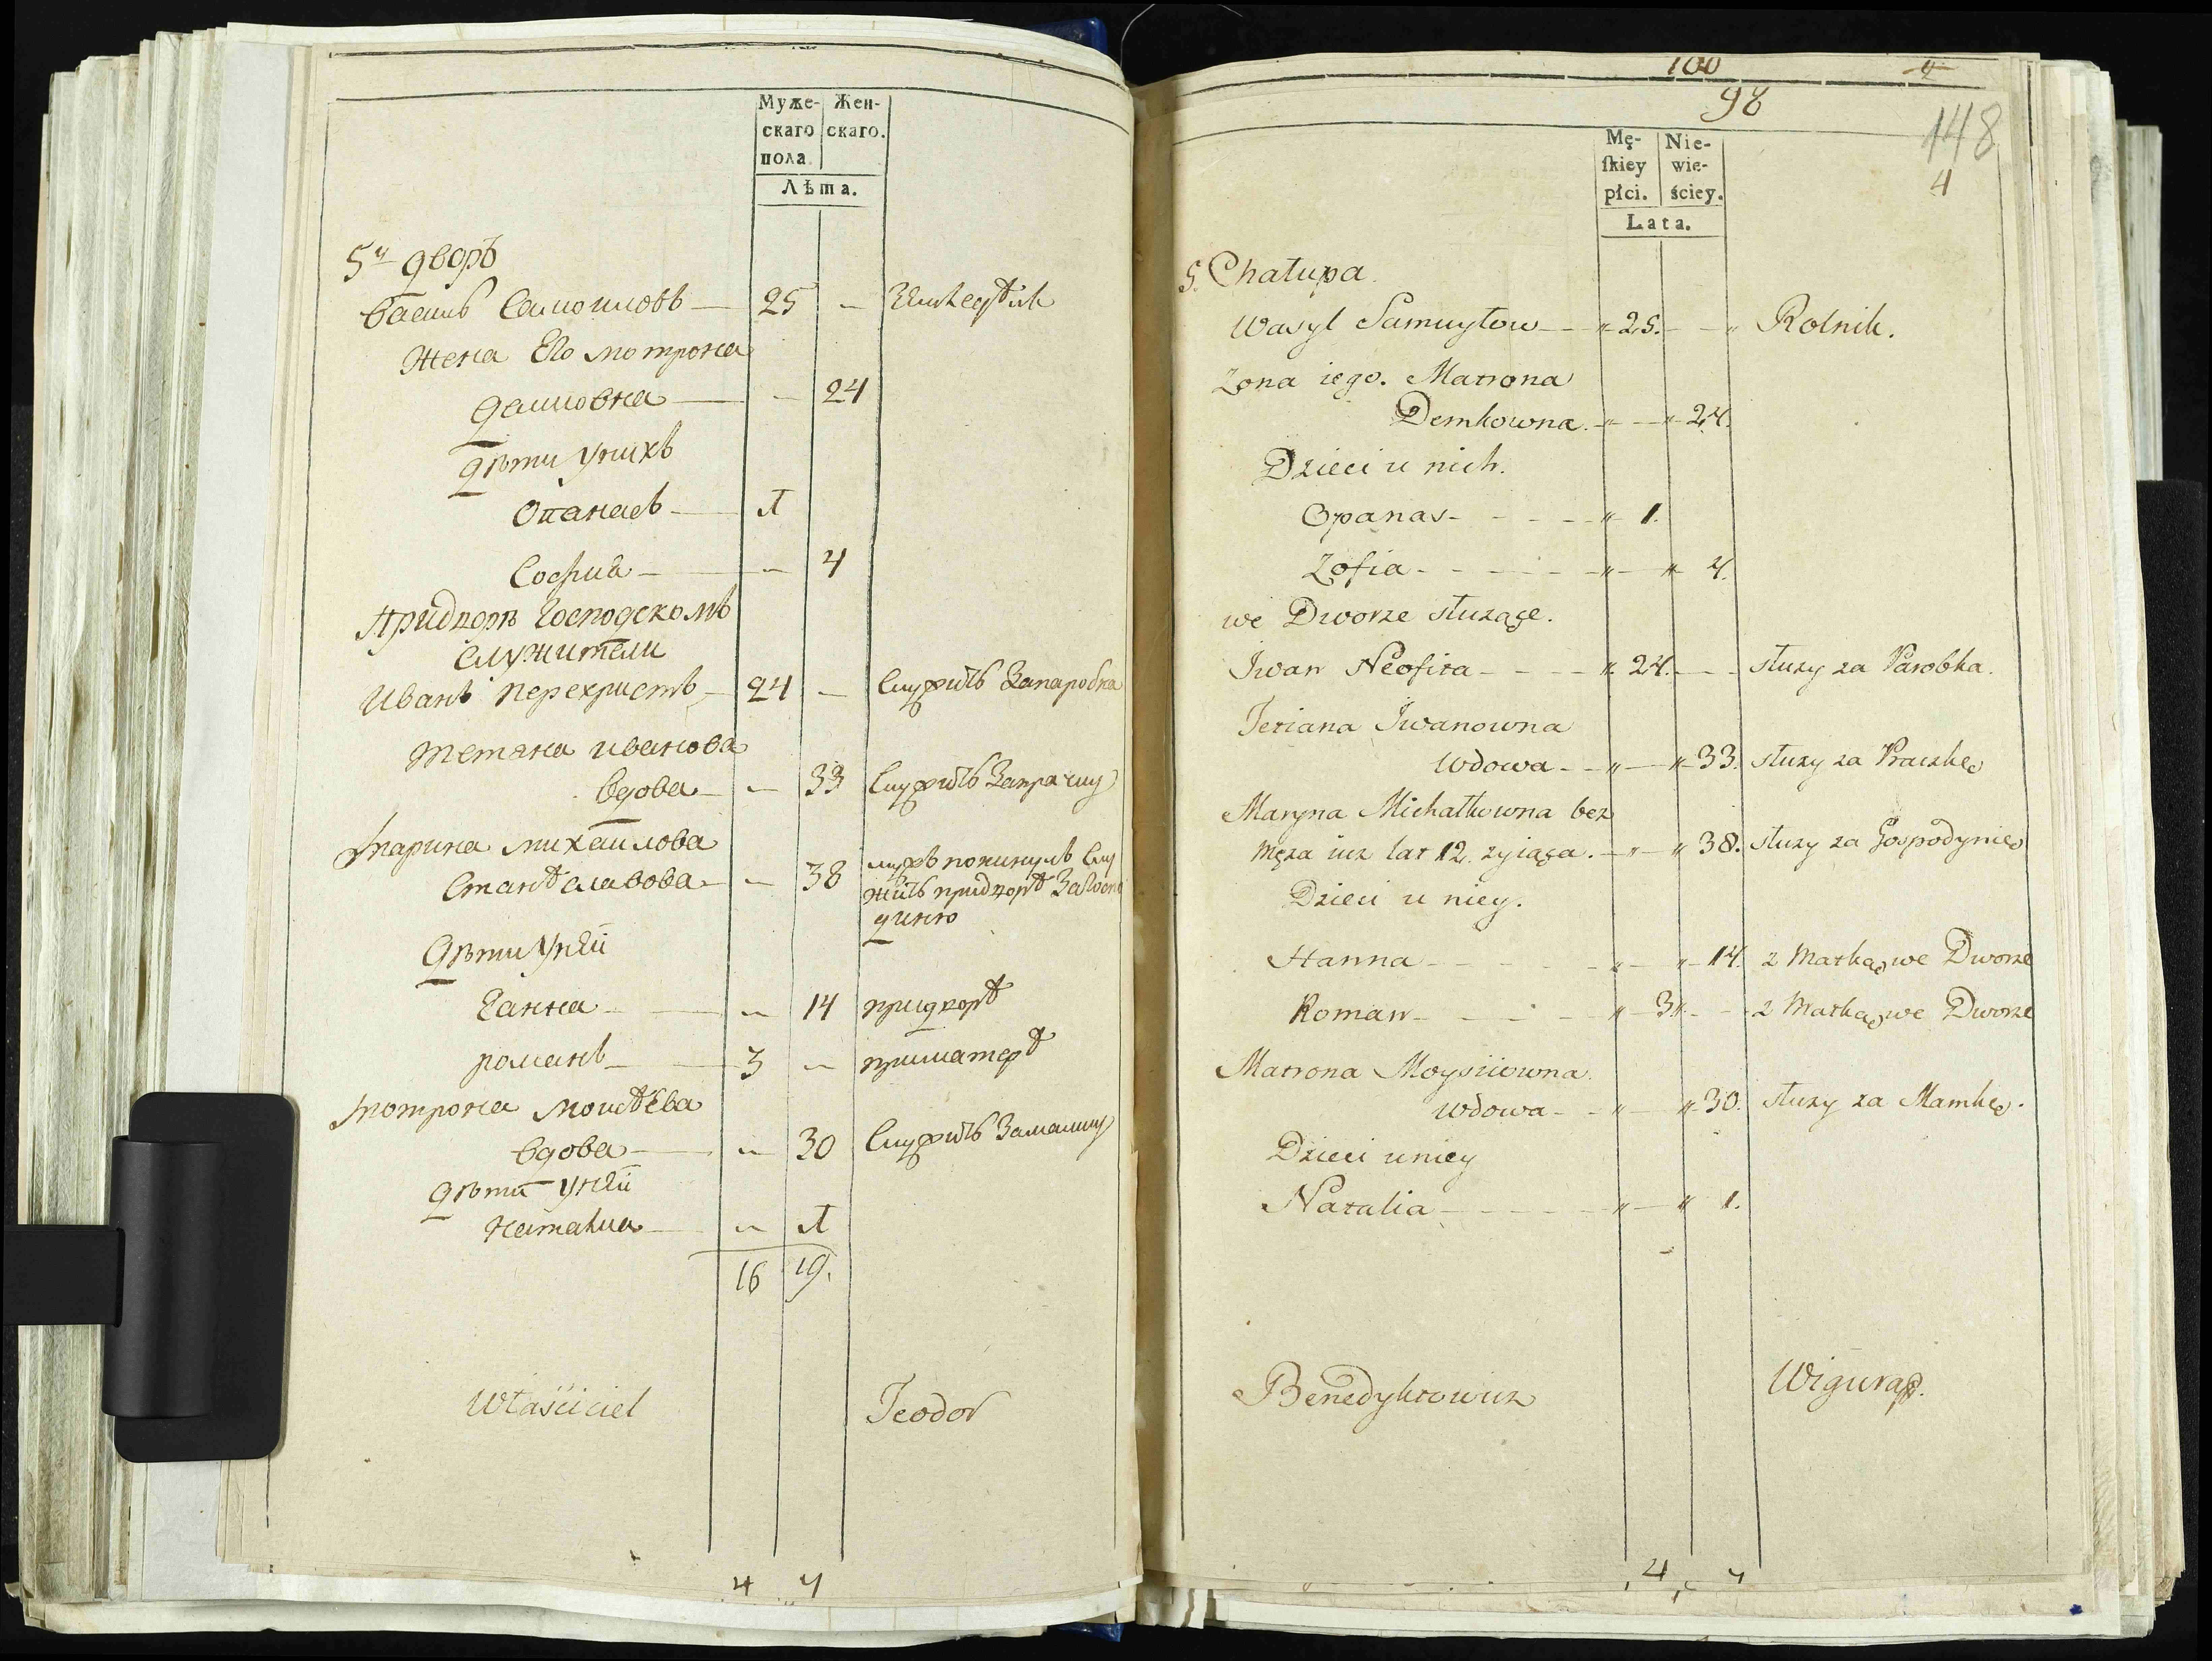 Муже- Жен-
скаго скаго.
пола.
Лѣта.
5й дворъ
Василь Самоиловъ — 25 — Земледѣлъ
Жена Его мотрона
Демковна — — 24
Дѣти Унихъ
Опанасъ — 1
Софиа — — 4
Придворѣ Господскомъ
Служители
Иванъ перехристъ — 24 — Служитъ Запаробка
тетяна иванова
вдова — — 33 Служитъ Запрачку
Марина михаилова
Станѣславова — — 38 мужъ покинулъ Слу
житъ придворѣ Загоспо
диню
Дѣти Унеи
Ганна — — 14 придворѣ
романъ — 3 — приматерѣ
мотрона моисѣева
вдова — — 30 Служитъ Замамку
Дѣти Унеи
наталиа — — 1
16 19.
Właściciel Teodor
4 7
100
98
148
4
Mę- Nie-
skiey wie-
płci. ściey.
Lata.
5. Chałupa.
Wasyl Samuyłow — " 25. — " Rolnik.
Zona iego. Matrona
Demkowna. — " — " 24.
Dzieci u nich.
Opanas - - - - " 1.
Zofia - - - - " — " 4.
we Dworze służące.
Iwan Neofita - - - " 24. — służy za Parobka.
Tetiana Iwanowna
Wdowa - - " — " 33. służy za Praczkę
Maryna Michałkowna bez
Męża iuż lat 12. zyiąca. — " — " 38. służy za Gospodynię
Dzieci u niey.
Hanna - - - - " — " 14. z Matką we Dworze
Roman - - - - " 3 " - - z Matką we Dworze
Matrona Moysiiowna
Wdowa - - " — " 30. służy za Mamkę.
Dzieci u niey
Natalia - - - - " — " 1.
Benedyktowicz Wigura
4 7